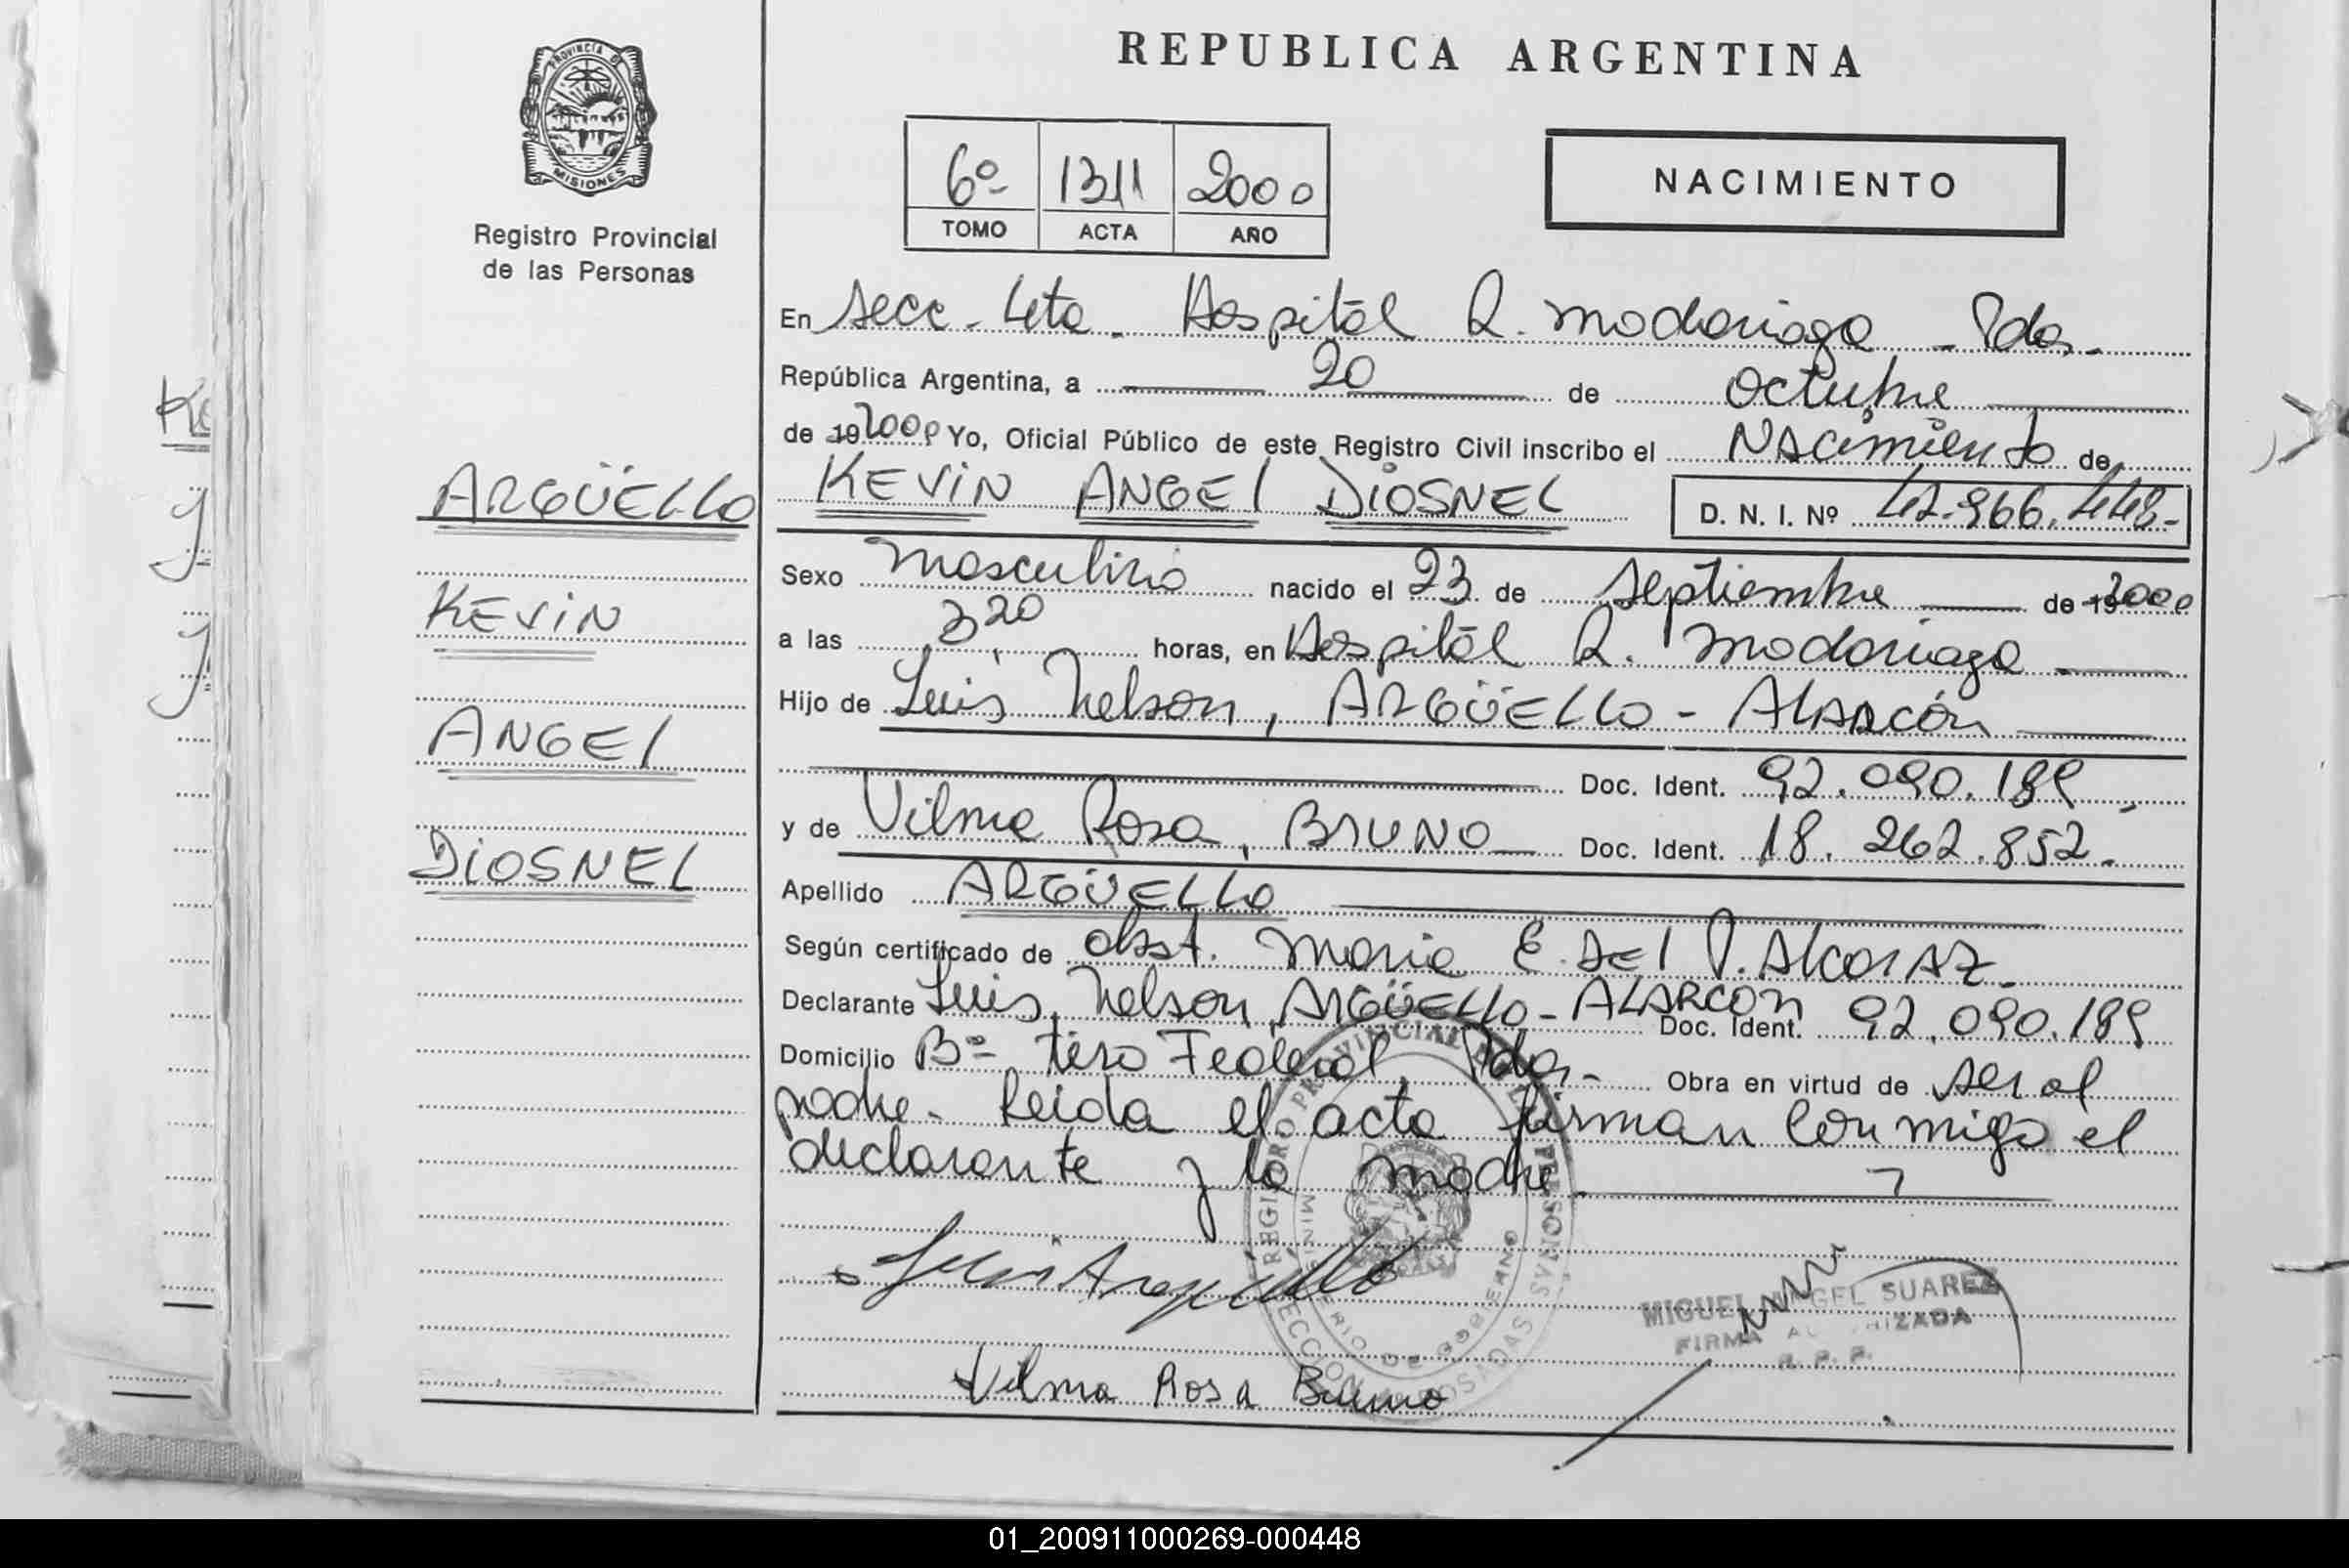 PROVINCIA DE
MISIONES
Registro Provincial
de las Personas
ARGÜELLO
KEVIN
ANGEL
DIOSNEL
REPUBLICA ARGENTINA
6º 1311 2000
TOMO ACTA AÑO
NACIMIENTO
En Secc. 4ta. Hospital R. Madariaga - Pdas.
República Argentina, a 20 de octubre
de 19 2000 Yo, Oficial Público de este Registro Civil inscribo el Nacimiento de
KEVIN ANGEL DIOSNEL D. N. I. Nº 42.966.448-
Sexo Masculino nacido el 23 de Septiembre de 19 2000
a las 3,20 horas, en Hospital R. Madariaga
Hijo de Luis Nelson, ARGÜELLO - ALARCÓN
Doc. Ident. 92.090.189
y de Vilma Rosa, BRUNO Doc. Ident. 18.262.852.
Apellido ARGÜELLO
Según certificado de obst. Maria E. del P. Alcaraz.
Declarante Luis Nelson, ARGÜELLO - ALARCÓN Doc. Ident. 92.090.189
Domicilio Bº Tiro Federal, Pdas. Obra en virtud de ser el
padre. Leida el acta firman conmigo el
declarante y la madre.
REGISTRO PROVINCIAL DE LAS PERSONAS
MINISTERIO DE GOBIERNO
Luis Arguello
MIGUEL ANGEL SUAREZ
FIRMA AUTORIZADA
R. P. P.
Vilma Rosa Bruno
01_200911000269-000448